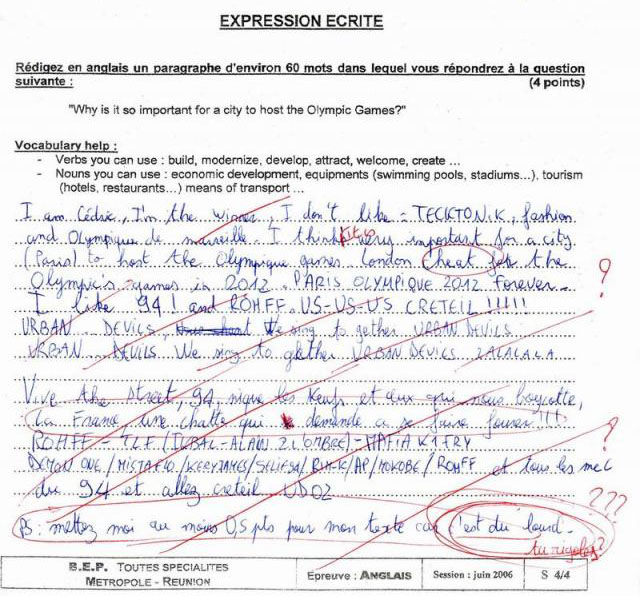 EXPRESSION ECRITE
Rédigez en anglais un paragraphe d'environ 60 mots dans lequel vous répondrez à la question
suivante : (4 points)
"Why is it so important for a city to host the Olympic Games?"
Vocabulary help :
- Verbs you can use : build, modernize, develop, attract, welcome, create ...
- Nouns you can use : economic development, equipments (swimming pools, stadiums...), tourism
(hotels, restaurants...) means of transport ...
I am Cédric, I'm the winner, I don't like = TECKTONIK, fashion
and Olympique de marseille. I think it is very important for a city
(Paris) to host the Olympique games. London Cheat for the
Olympic's games in 2012. PARIS OLYMPIQUE 2012 Forever.
I like 94! and ROHFF. US-US-US CRETEIL !!!!!
URBAN DEVILS, We sing to gether URBAN DEVILS
URBAN DEVILS We sing to gether URBAN DEVILS LALALALA
?
Vive the Street, 94, nique les Keufs et ceux qui nous boycotte,
La France, une chatte qui demande a se faire !!!
ROHFF - TLF (IKBAL-ALAIN 2 L'OMBRE) - MAFIA K1FRY
DEMON ONE / MISTA FLO / KERYJAMES / SELIFSA / RIMK / AP / MOKOBE / ROHFF et tous les mec
du 94 et allez creteil UD02
?
???
PS: mettez moi au moins 0,5 pts pour mon texte car c'est du lourd.
tu rigoles?
B.E.P. TOUTES SPECIALITES
METROPOLE - REUNION
Epreuve : ANGLAIS
Session : juin 2006
S 4/4